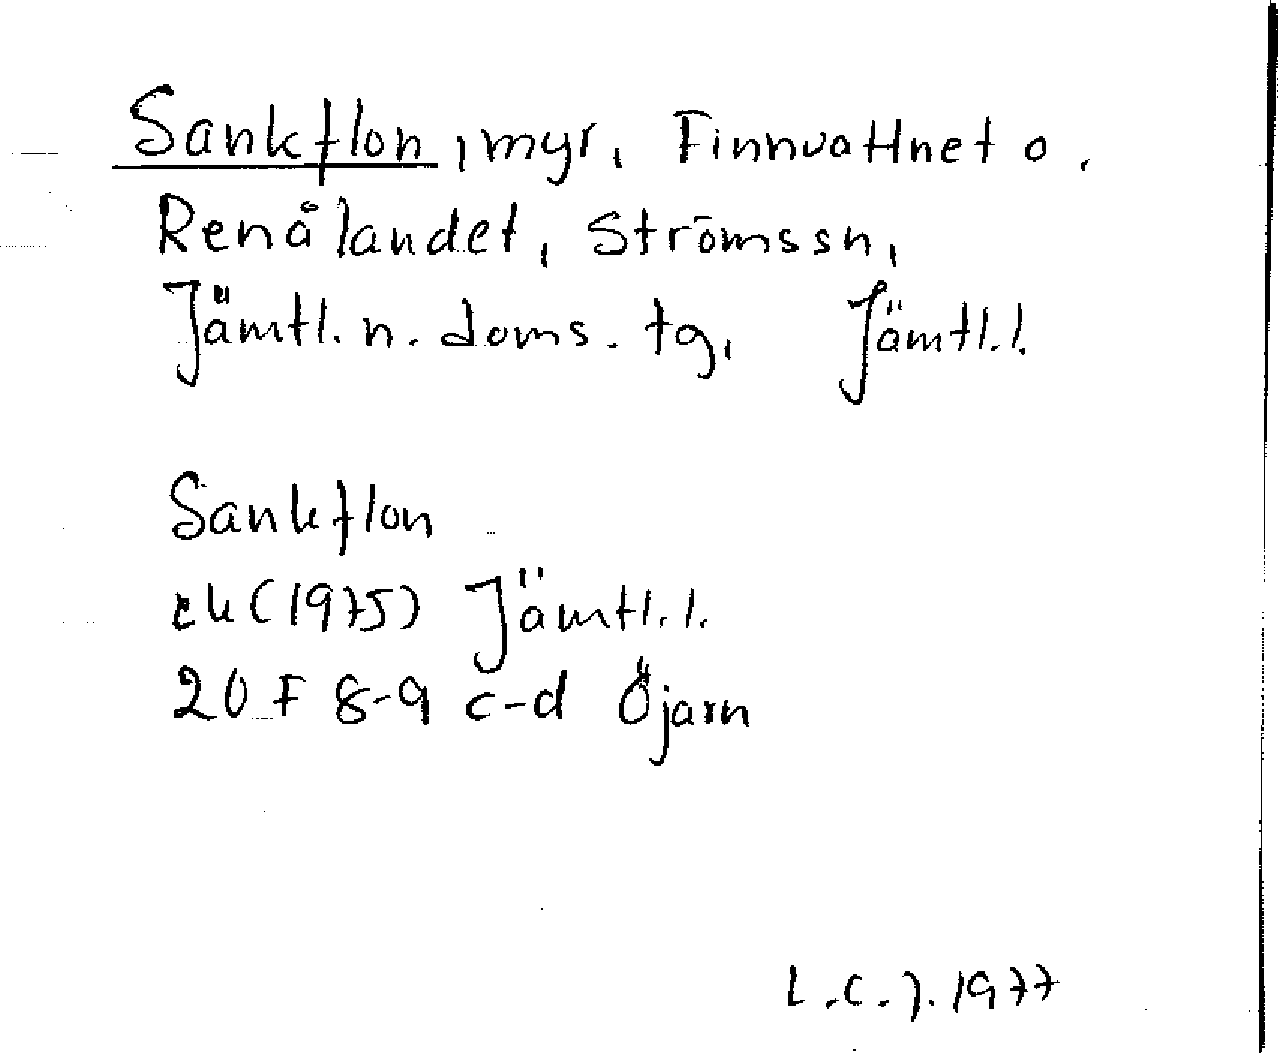 Sankflon, myr, Finnvattnet o.
Renålandet, Ströms sn,
Jämtl. n. doms. tg, Jämtl. l.
Sankflon
ek (1975) Jämtl. l.
20 F 8-9 c-d Öjarn
L.C.J. 1977